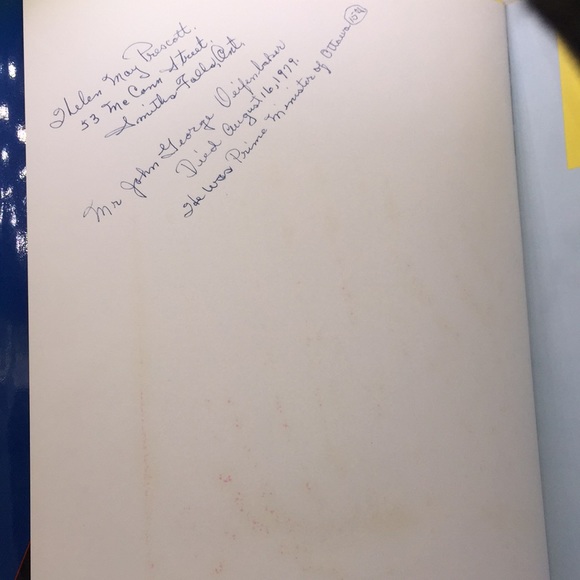 Helen May Prescott.
53 McCann Street.
Smiths Falls, Ont.
Mr John George Deifenbaker
Died August 16, 1979.
He Was Prime Minister of Ottawa